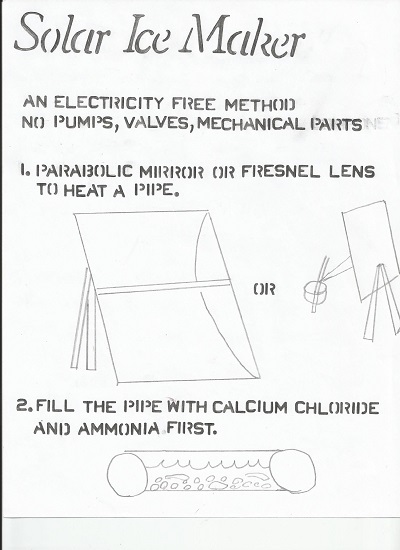 Solar Ice Maker
AN ELECTRICITY FREE METHOD
NO PUMPS, VALVES, MECHANICAL PARTS
1. PARABOLIC MIRROR OR FRESNEL LENS
TO HEAT A PIPE.
OR
2. FILL THE PIPE WITH CALCIUM CHLORIDE
AND AMMONIA FIRST.